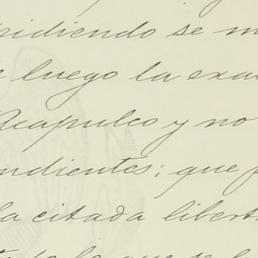 pidiendo se m
luego la exa
Acapulco y no
ndientes; que
la citada libert